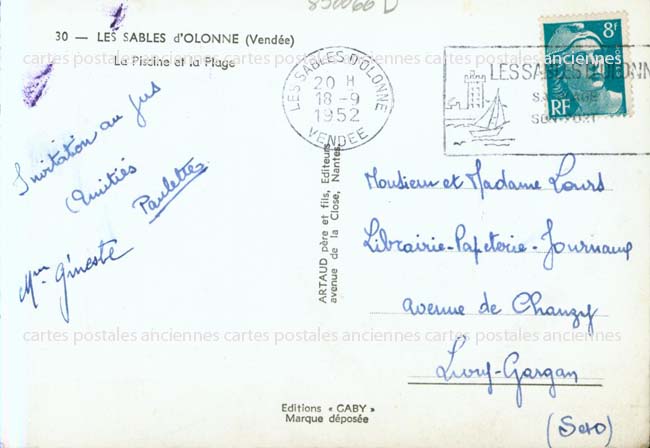 850066 D
30 — LES SABLES d'OLONNE (Vendée)
La Piscine et la Plage
LES SABLES D'OLONNE
20 H
18 -9
1952
VENDEE
8F
RF
LES SABLES D'OLONNE
SA PLAGE
SON PORT
cartes postales anciennes cartes postales anciennes cartes postales anciennes
Invitation au jus
Amitiés
Paulette
Mme Gineste
ARTAUD père et fils, Editeurs
avenue de la Close, Nantes
Monsieur et Madame Lours
Librairie-Papeterie-Journaux
avenue de Chanzy
Livry-Gargan
(S et O)
cartes postales anciennes cartes postales anciennes cartes postales anciennes
Editions « GABY »
Marque déposée